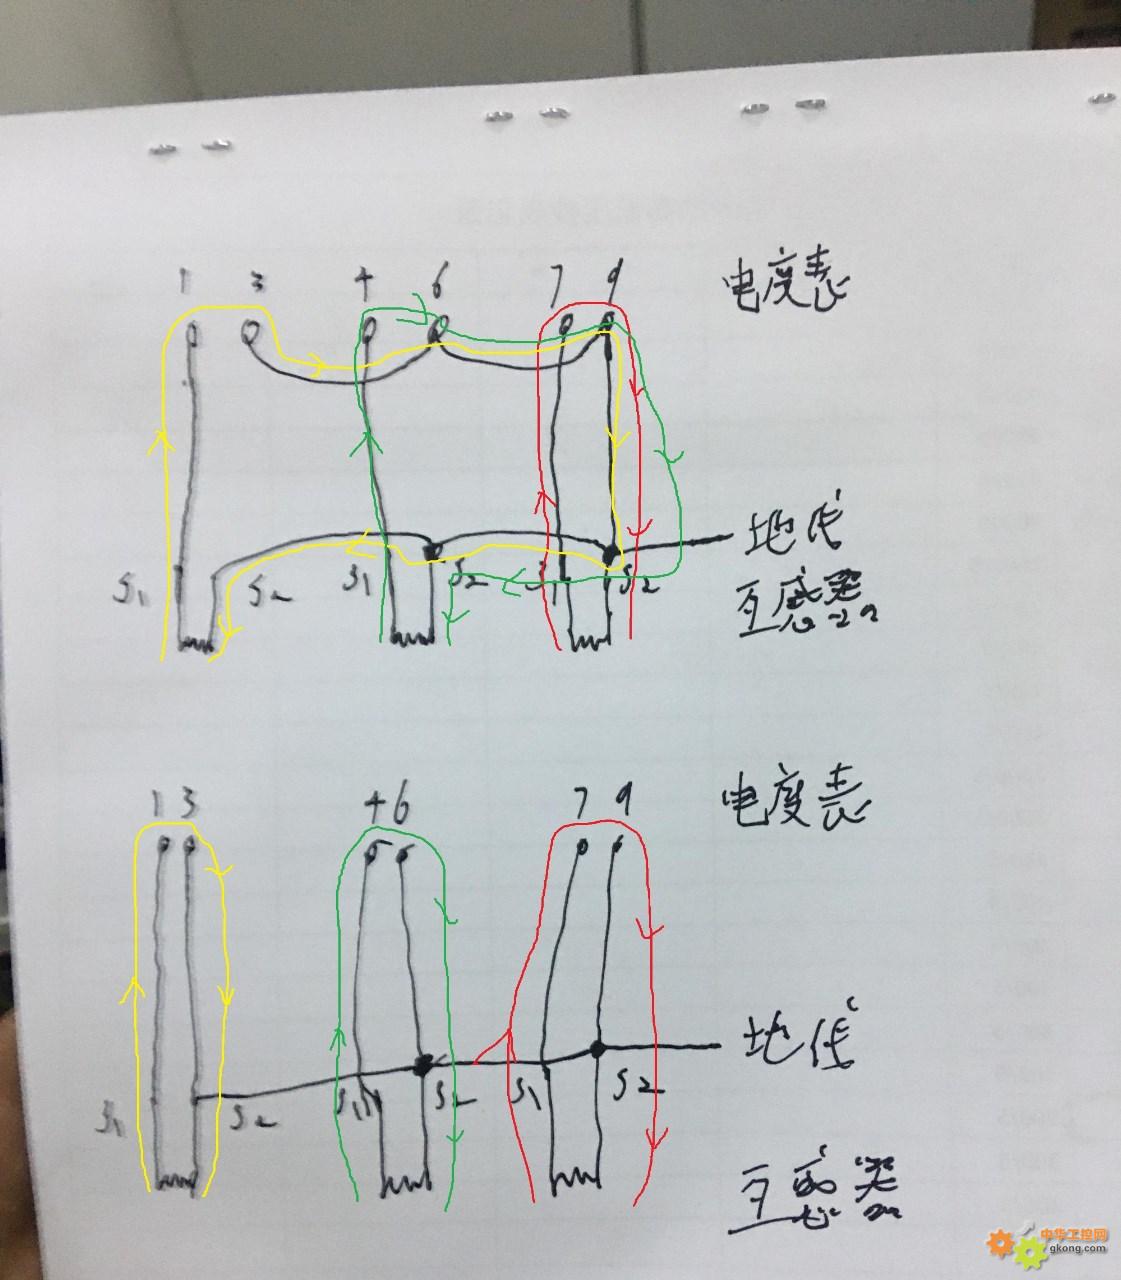 1 3 4 6 7 9 电度表
地线
S1 S2 S1 S2 S1 S2
互感器
1 3 4 6 7 9 电度表
地线
S1 S2 S1 S2 S1 S2
互感器
中华工控网
gkong.com